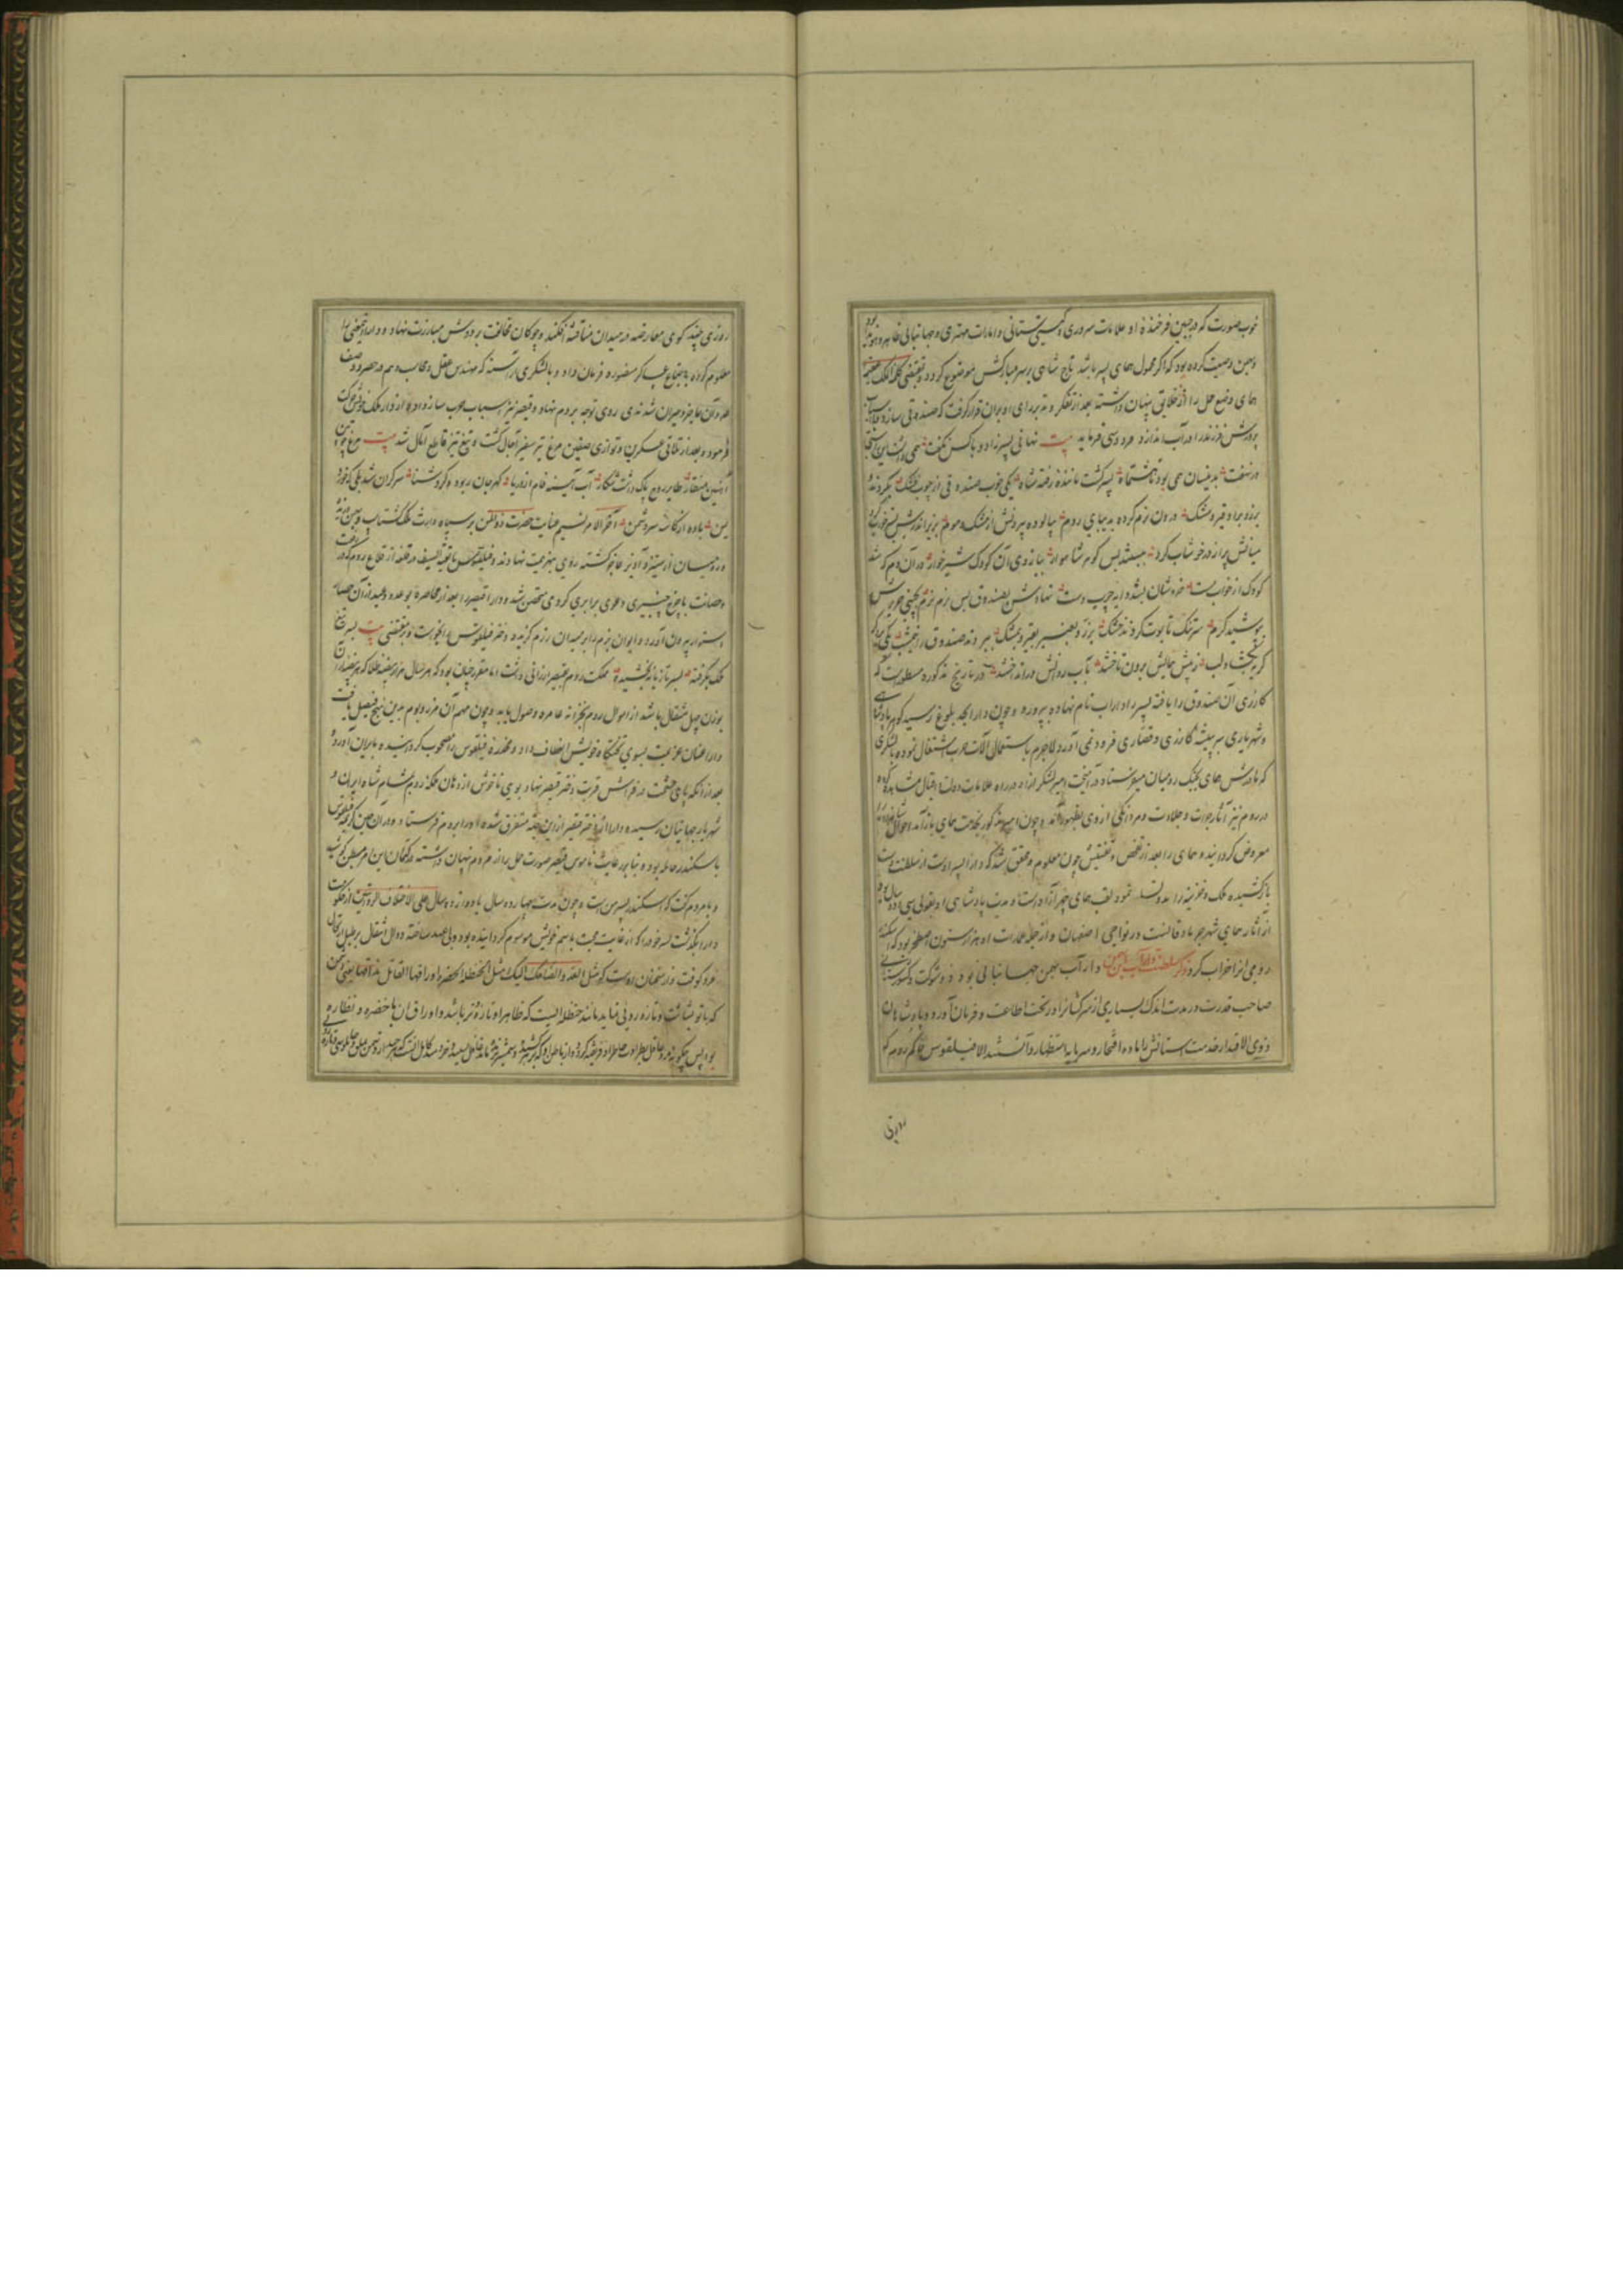 خوب صورت که در جبین فرخنده او علامات سروری و گیتی ستانی و امارات مهتری و جهانبانی ظاهر و هویدا بود
و بهمن وصیت کرده بود که اگر محمول همای پسر باشد تاج شاهی بر سر مبارکش موضوع گردد و بمقتضی کلمه الملک عقیم
همای وضع حمل را از خلایق پنهان داشته بعد از تفکر و تدبر رای او بران قرار گرفت که صندوقی سازد و
پرورش فرزند را در آب اندازد فردوسی فرماید بیت نهانی پسر زاد و با کس نگفت همی داشت این راستی
در نهفت بدینسان همی بود تا هشت ماه پسر گشت ماننده رفته شاه یکی خوب صندوقی از چوب خشک بکردند
برزو بر او قیر و مشک درون نرم کرده بدیبای روم بیالوده بیرونش از مشک و موم بزیر اندرش بستر خواب کرد
میانش پر از در خوشاب کرد ببستند بس گوهر شاهوار ببازوی آن کودک شیرخوار در آن دم که شد
کودک از خواب مست خروشان بشد دایه چرب دست نهادش بصندوق بس نرم نرم بچینی حریرش
بپوشید گرم سر تنگ تابوت کردند خشک بدبق و بعنبر بقیر و بمشک ببردند صندوق را نیمشب یکی بر دگر
بر نجنباند لب ز پیش همایش برون تاختند بآب روانش در انداختند در تاریخ مذکوره مسطورست که
گازری آن صندوق را یافته پسر را داراب نام نهاده بپرورد و چون دارا بحد بلوغ رسید گوهر پادشاهی
و شهریاری سر بپیشه گازری و قصاری فرود نمی آورد لاجرم باستعمال آلات حرب اشتغال نموده با لشکری
که مادرش همای بجنگ رومیان میفرستاد در آمیخت و امیر لشکر از او در راه علامات دولت و اقبال مشاهده کرده
در روم نیز آثار جرات و جلادت و مردانگی از وی بظهور آمد و چون امیر مذکور بخدمت همای باز آمد احوال
معروض گردانیده و همای را بعد از تفحص و تفتیش چون معلوم و محقق شد که دارا پسر اوست از سلطنت دست
باز کشیده ملک و خزینه را بدو نمود لقب همای چهر آزاد است و مدت پادشاهی او بقولی سی و دو سال بود
از آثار همای شهر جرباد قانست در نواحی اصفهان و از جمله عمارات او هزار ستون اصطخر بود که اسکندر
رومی انرا خراب کرد ذکر سلطنت داراب بن بهمن داراب بهمن جهانبانی بود ذو شوکت و کشورستانی
صاحب قدرت در مدت اندک بسیاری از سرکشانرا در تحت اطاعت و فرمان آورد و پادشاهان
ذوی الاقتدار خدمت آستانش را ماده افتخار و سرمایه استظهار دانستند الا فیلقوس حاکم روم که
روزی
روزی چند گوی معارضه در میدان مناقشه افکند و چوگان مخالفت بر دوش مبارزت نهاد و دارا
معلوم کرده باجتماع عساکر منصوره فرمان داد و با لشکری آراسته که مهندس عقل و محاسب وهم در حصر و وصف
آن عاجز و حیران شدندی روی توجه بروم نهاد و قیصر نیز اسباب حرب ساز داده از دار ملک خویش حرکت
فرمود و بعد از تلاقی عسکرین و توازی صفین مرغ تیر سفیر آجال گشت و تیغ تیز قاطع آمال شد بیت مرغ چوبین
آهنین منقار طایر روح پاک داشت شکار آب آیینه فام از دریا گهر جان ربوده و کرد شنا سرگران شد یکی
باده از کاسه سر دشمن و آخر الامر نسیم عنایت حضرت ذوالمنن بر سپاه وارث ملک گشتاسب و بهمن وزید
و رومیان از ستیز و آویز عاجز گشته روی بهزیمت نهادند و فیلقوس با بقیه السیف در قلعه از قلاع روم که در رفعت
و حصانت با چرخ چنبری دعوی برابری کردی متحصن شد و دارا قیصر را بعد از محاصره بوعده و وعید از آن حصار
استوار بیرون آورد و ایوان بزم را بر میدان رزم گزیده دختر فیلقوس را بخواست و بمقتضی بیت بسر تیغ
ملک بگرفته بسر تازیانه بخشیده مملکت روم بقیصر ارزانی داشت اما مقرر چنان بود که هر سال هزار بیضه طلا که هر بیضه
بوزن چهل مثقال باشد از اموال روم بخزانه عامره وصول یابد و چون مهم آن مرز و بوم بدین نهج فیصل یافت
دارا عنان عزیمت بسوی تختگاه خویش انعطاف داد و مخدره فیلقوس را مصحوب گردانیده بایران آورد و
بعد از آنکه پای حشمت در فراش قربت دختر قیصر نهاد بوی ناخوش از دهان ملکه روم بمشام شاه ایران و
شهریار جهانیان رسیده دارا از دختر قیصر از این جهه متنفر شده او را بروم فرستاد و در آن حین که دختر فیلقوس
باسکندر حامله بود و بنا بر رعایت ناموس قیصر صورت حمل را از مردم پنهان داشته در کتمان این امر
و با مردم گفت که اسکندر پسر من است و چون مدت چهارده سال یا دوازده سال علی الاختلاف الروایتین از حکومت
دارا بگذشت پسر خود را که از غایت محبت باسم خویش موسوم گردانیده بود ولی عهد ساخته دوال انتقال بر طبل ارتحال
فرو کوفت و از سخنان اوست که مثل العدو الضاحک الیک مثل الحنظله الخضره اوراقها القاتل مذاقها یعنی دشمن
که با تو بشاشت و تازه رویی نماید مانند حنظله ایست که ظاهر او تازه و تر باشد و اوراق ان با خضره و نضاره
بود پس چگونه مرد عاقل بطراوت ظاهر او فریفته گردد و از باطن او